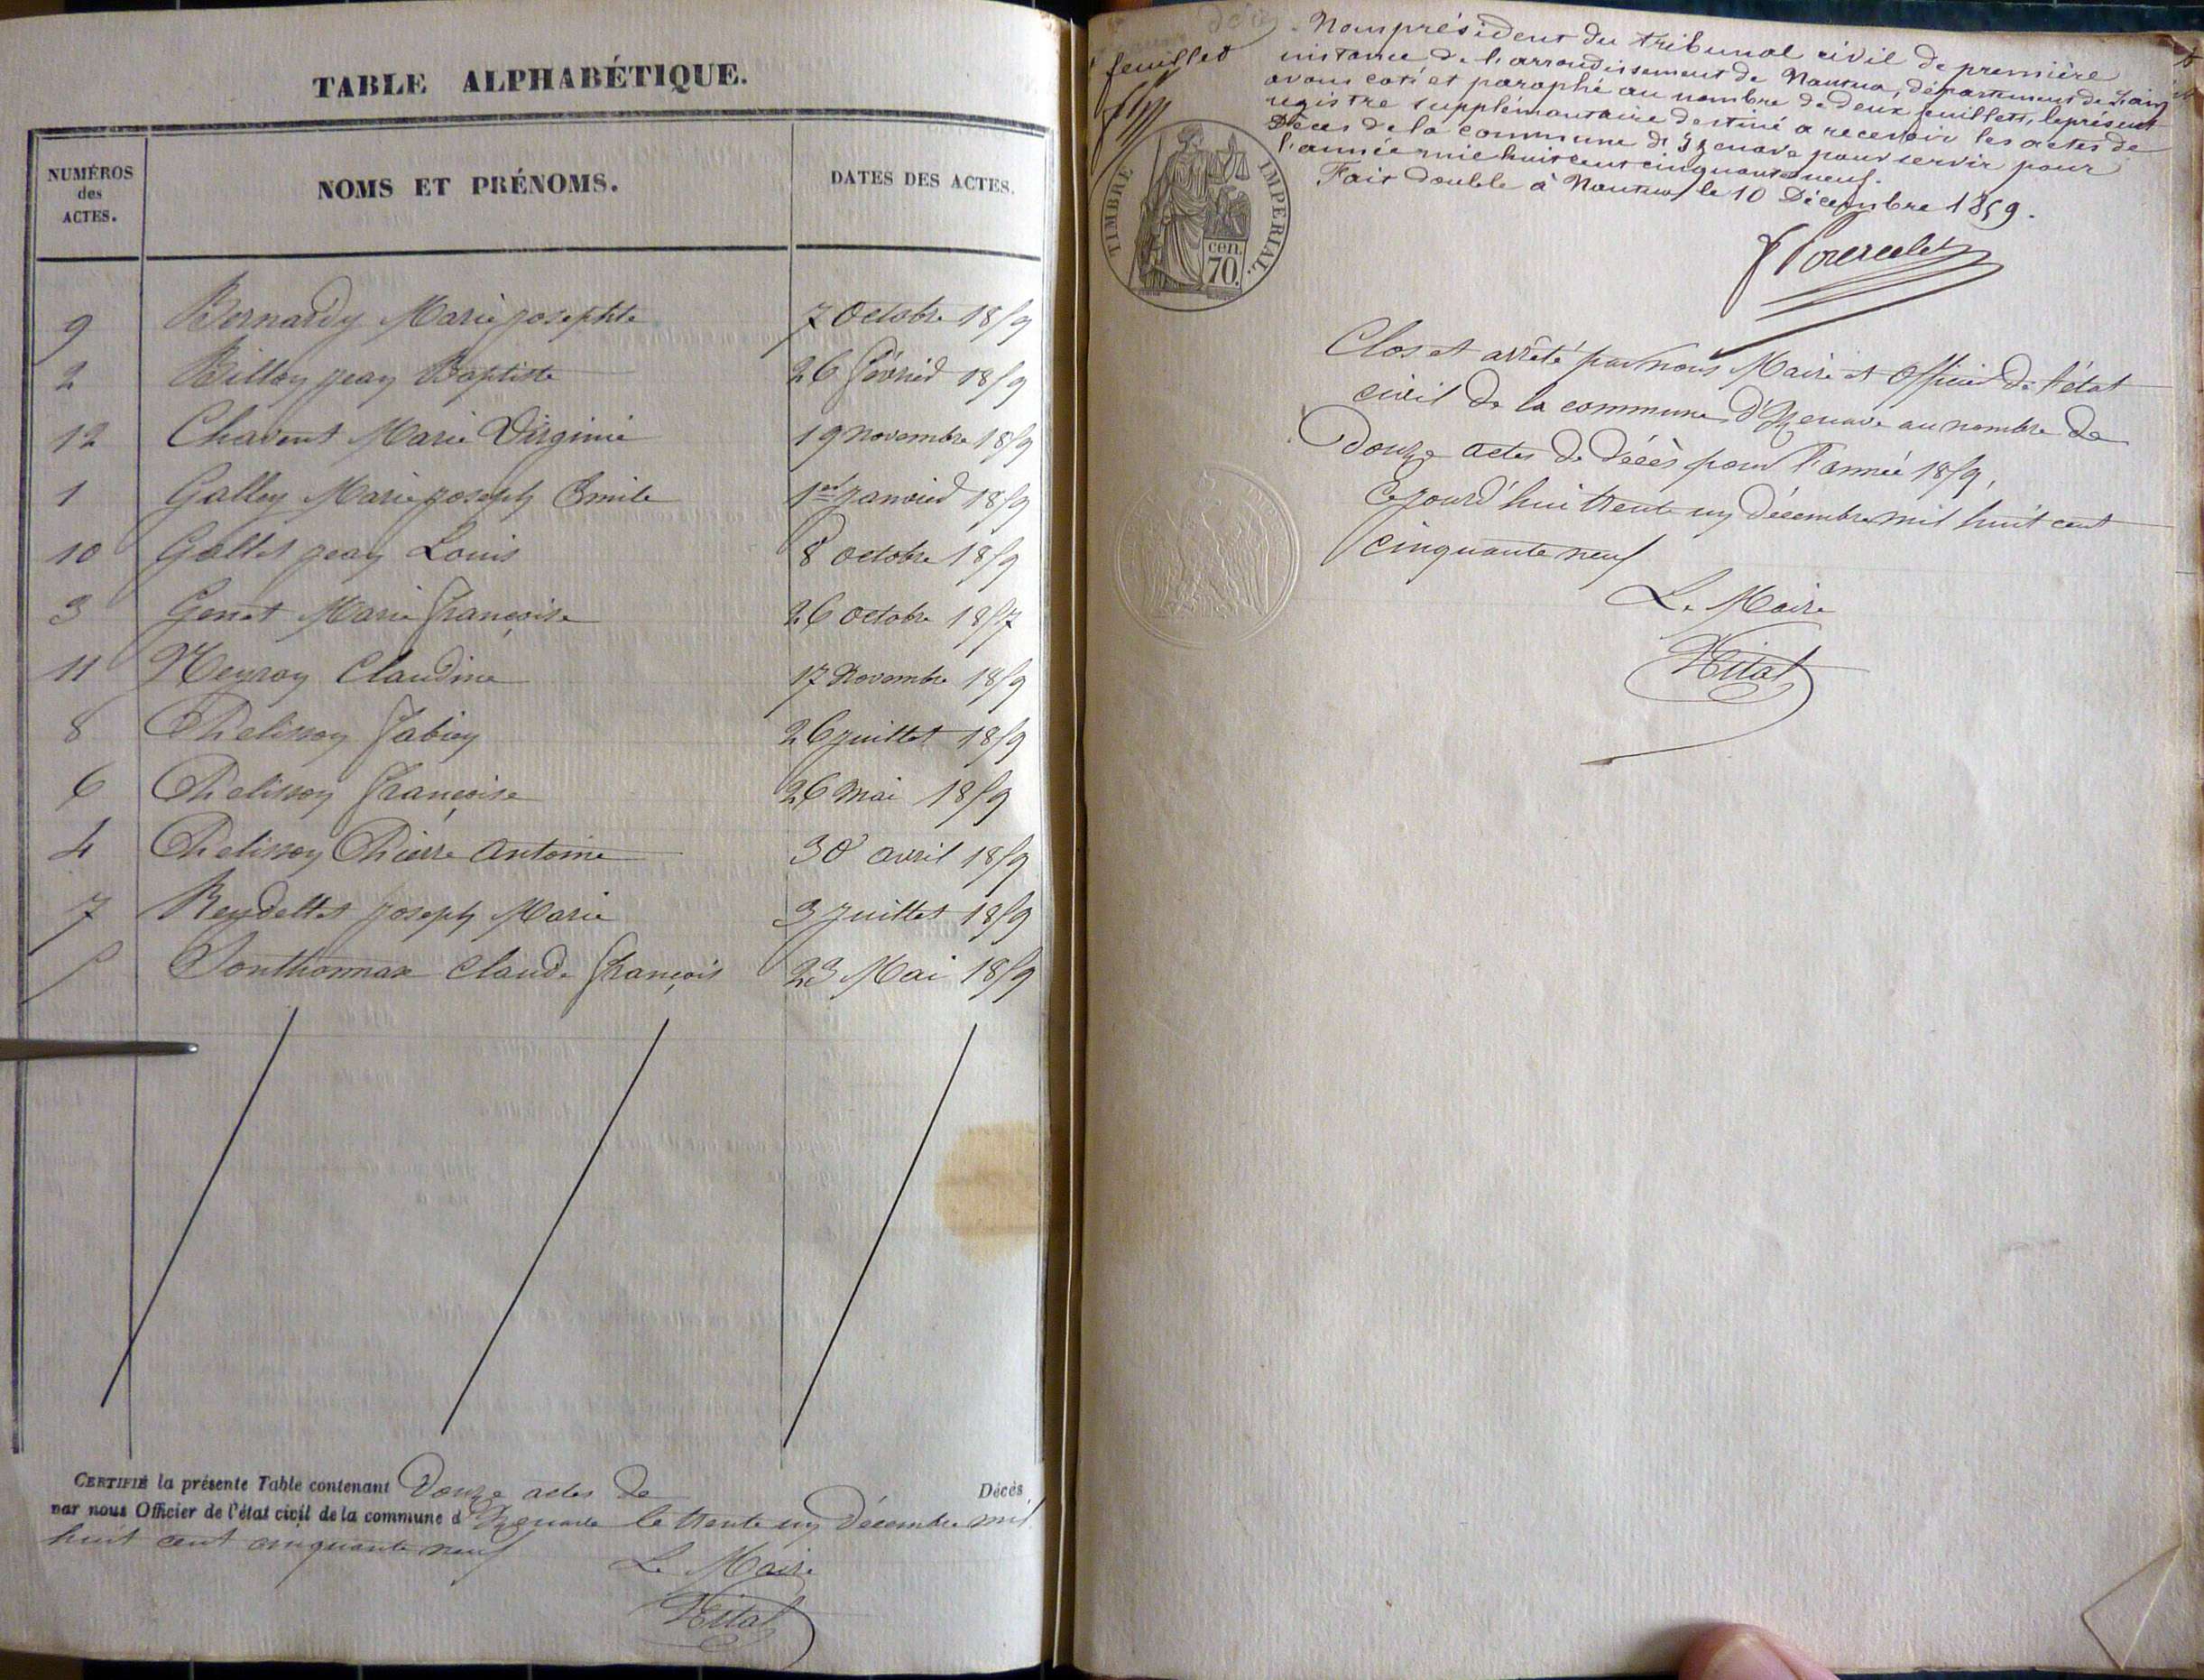 TABLE ALPHABÉTIQUE.
NUMÉROS
des
ACTES.
NOMS ET PRÉNOMS.
DATES DES ACTES.
9 Bernardy Marie josephte 7 Octobre 1859
2 Billoy jean Baptiste 26 février 1859
12 Chavent Marie Virginie 19 novembre 1859
1 Galley Marie joseph Emile 1er janvier 1859
10 Gallet jean Louis 8 octobre 1859
3 Genet Marie françoise 26 octobre 1857
11 Neyroy Claudine 17 Novembre 1859
8 Pelisson fabien 26 juillet 1859
6 Pelisson françoise 26 Mai 1859
4 Pelisson Pierre antoine 30 avril 1859
7 Reydellet joseph Marie 3 juillet 1859
5 Sonthonnax Claude françois 23 Mai 1859
CERTIFIÉ la présente Table contenant Douze actes de Décès
par nous Officier de l'état civil de la commune d'Izenave le trente un décembre mil
huit cent cinquante neuf
Le Maire
Vital
feuillet
Nous président du tribunal civil de première
instance de l'arrondissement de Nantua, département de l'ain
avons coté et paraphé au nombre de deux feuillets, le présent
registre supplémentaire destiné a recevoir les actes de
Décès de la commune d'Izenave pour servir pour
l'année mil huit cent cinquante neuf.
Fait double à Nantua le 10 Décembre 1859.
TIMBRE IMPÉRIAL.
cen.
70.
Clos et arrêté par nous Maire et officier de l'état
civil de la commune d'Izenave au nombre de
Douze actes de décès pour l'année 1859,
Cejourd'hui trente un décembre mil huit cent
cinquante neuf
Le Maire
Vital